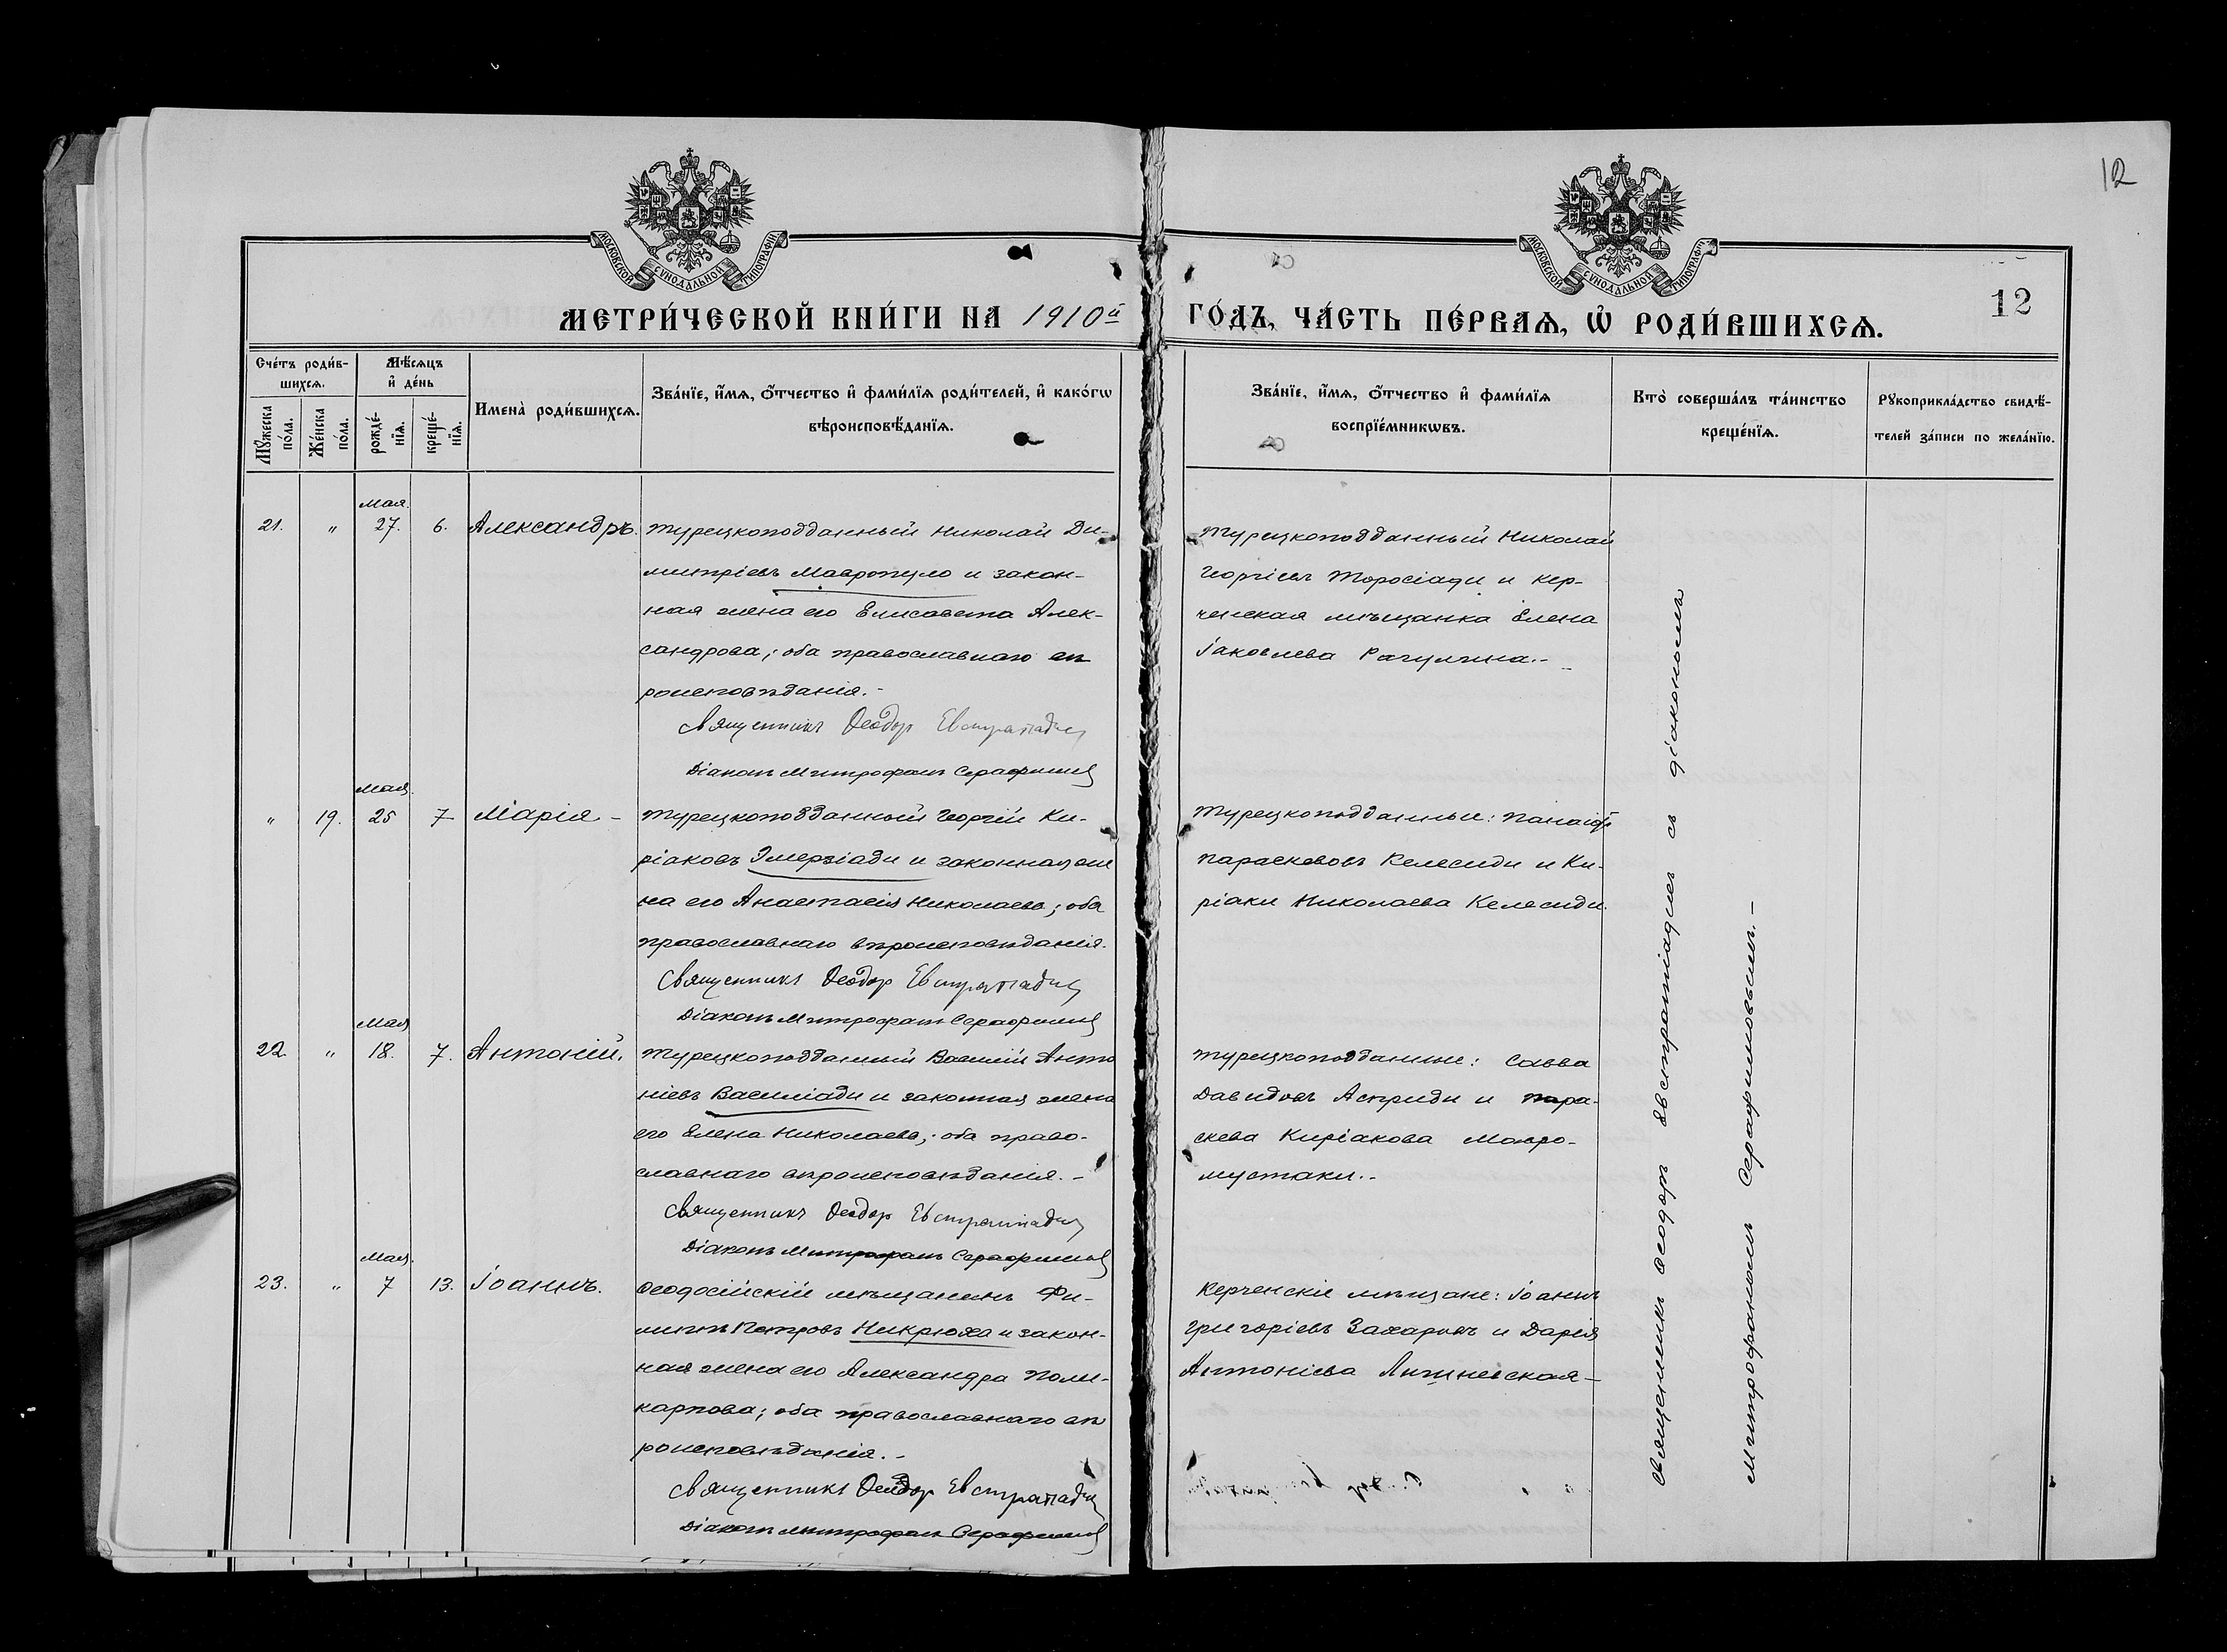 12
МОСКОВСКОЙ СѴНОДАЛЬНОЙ ТИПОГРАФІИ
МОСКОВСКОЙ СѴНОДАЛЬНОЙ ТИПОГРАФІИ
12
МЕТРИ́ЧЕСКОЙ КНИ́ГИ НА 1910й ГО́ДЪ, ЧА́СТЬ ПЕ́РВАѦ, Ѽ РОДИ́ВШИХСѦ.
Сче́тъ роди́в-
шихсѧ.
Мѣ́сѧцъ
и҆ де́нь
Мꙋ́жеска
по́ла.
Же́нска
по́ла.
рожде́-
нїѧ.
креще́-
нїѧ.
Имена̀ роди́вшихсѧ.
Зва́нїе, и҆́мѧ, ѻ҆́тчество и҆ фами́лїѧ роди́телей, и҆ како́гѡ
вѣроисповѣ́данїѧ.
Зва́нїе, и҆́мѧ, ѻ҆́тчество и҆ фами́лїѧ
воспрїе́мникѡвъ.
Кто̀ соверша́лъ та́инство
креще́нїѧ.
Рꙋкоприкла́дство свидѣ́-
телей за́писи по жела́нїю.
Мая.
21. " 27. 6. Александръ.
Турецкоподданный Николай Ди-
митріевъ Мавропуло и закон-
ная жена его Елисавета Алек-
сандрова; оба православнаго вѣ
роисповѣданія.-
Священникъ Ѳеодор Евстратиадис
Діаконъ Митрофанъ Серафимов
Турецкоподданный Николай
Георгіевъ Торосіади и кер-
ченская мѣщанка Елена
Іаковлева Рагулина.-
Мая.
" 19. 25 7 Марія -
Турецкоподданный Георгій Ки-
ріаковъ Эмерзіади и законная же
на его Анастасія Николаева; оба
православнаго вѣроисповѣданія.
Священникъ Ѳеодор Евстратиадис
Діаконъ Митрофанъ Серафимов
Турецкоподданные: Панаіотъ
Параскевовъ Келесиди и Ки-
ріаки Николаева Келесиди.
Мая
22. " 18. 7. Антоній.
Турецкоподданный Василій Анто
ніевъ Василіади и законная жена
его Елена Николаева; оба право-
славнаго вѣроисповѣданія.-
Священникъ Ѳеодор Евстратиадис
Діаконъ Митрофанъ Серафимов
Турецкоподданные: Савва
Давидовъ Асприди и Пара-
скева Киріакова Мавро-
мустаки.-
Мая.
23. " 7 13. Іоаннъ.
Ѳеодосійскій мѣщанинъ Фи-
липпъ Петровъ Никрюха и закон-
ная жена его Александра Поли-
карпова; оба православнаго вѣ
роисповѣданія.-
Священникъ Ѳеодор Евстратиадис
Діаконъ Митрофанъ Серафимов
Керченскіе мѣщане: Іоаннъ
Григоріевъ Захаровъ и Дарія
Антоніева Лишневская-
Священникъ Ѳеодоръ Евстратіадисъ съ діакономъ
Митрофаномъ Серафимовымъ.-